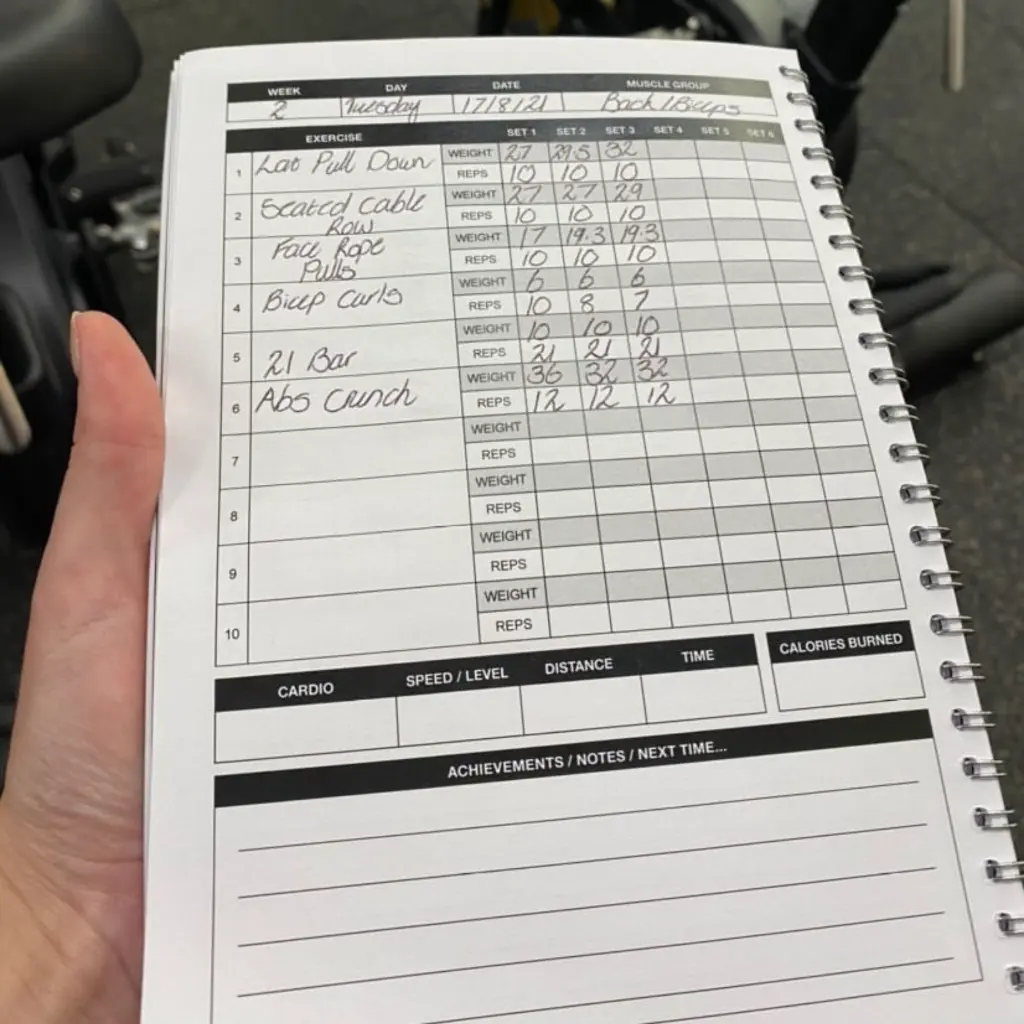 WEEK DAY DATE MUSCLE GROUP
2 Tuesday 17/8/21 Back/Biceps
EXERCISE SET 1 SET 2 SET 3 SET 4 SET 5 SET 6
1 Lat Pull Down WEIGHT 27 29.5 32
REPS 10 10 10
2 Seated Cable WEIGHT 27 27 29
Row REPS 10 10 10
3 Face Rope WEIGHT 17 19.3 19.3
Pulls REPS 10 10 10
4 Bicep Curls WEIGHT 6 6 6
REPS 10 8 7
5 21 Bar WEIGHT 10 10 10
REPS 21 21 21
6 Abs Crunch WEIGHT 36 32 32
REPS 12 12 12
7 WEIGHT
REPS
8 WEIGHT
REPS
9 WEIGHT
REPS
10 WEIGHT
REPS
CARDIO SPEED / LEVEL DISTANCE TIME CALORIES BURNED
ACHIEVEMENTS / NOTES / NEXT TIME...